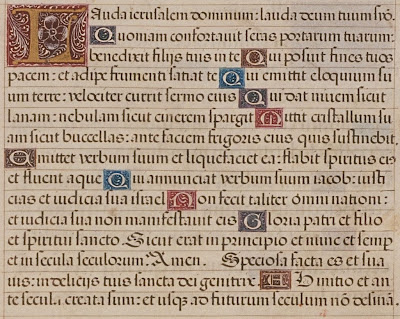 Lauda ierusalem dominum: lauda deum tuum sio̅.
Quoniam confortavit seras portarum tuarum:
benedixit filijs tuis in te. Qui posuit fines tuos
pacem: et adipe frumenti satiat te. Qui emittit eloquium su
um terre: velociter currit sermo eius. Qui dat nivem sicut
lanam: nebulam sicut cinerem spargit. Mittit cristallum su
am sicut buccellas: ante faciem frigoris eius quis sustinebit.
Emittet verbum suum et liquefaciet ea: flabit spiritus eis
et fluent aque. Qui annunciat verbum suum iacob: iusti
cias et iudicia sua israel. Non fecit taliter omni nationi:
et iudicia sua non manifestavit eis. Gloria patri et filio
et spiritui sancto. Sicut erat in principio et nunc et semp
et in secula seculorum. Amen. Speciosa facta es et sua
vis: in delicijs tuis sancta dei genitrix. Ab initio et an
te secula creata sum: et usq̃ ad futurum seculum nõ desinã.